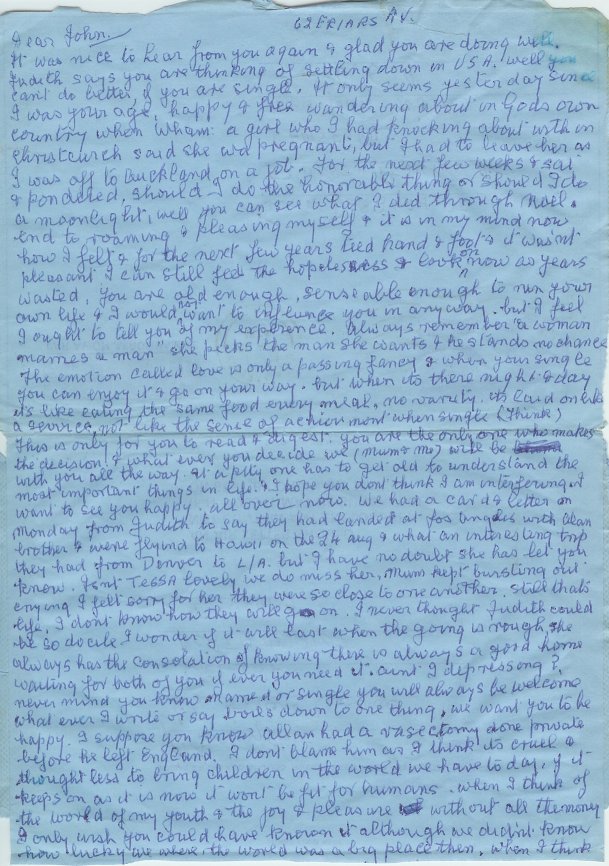 62 FRIARS AV.
Dear John.
It was nice to hear from you again & glad you are doing well.
Judith says you are thinking of settling down in USA. well you
cant do better, if you are single. It only seems yesterday since
I was your age, happy & free wandering about in Gods own
country when Wham: a girl who I had knocking about with in
Christchurch said she was pregnant, but I had to leave her as
I was off to Auckland, on a job. For the next few weeks I sat
& pondered, should I do the honorable thing or should I do
a moonlight, well you can see what I did through Noel.
end to roaming & pleasing myself & it is in my mind now
how I felt & for the next few years tied hand & foot & it wasnt
pleasant I can still feel the hopelessness & look on now as years
wasted, you are old enough, senseable enough to run your
own life & I would not want to influence you in anyway. but I feel
I ought to tell you of my experience. Always remember "a woman
marries a man" she picks the man she wants & he stands no chance
The emotion called love is only a passing fancy & when your single
you can enjoy it & go on your way. but when its there night & day
its like eating the same food every meal, no variety. its laid on like
a service, not like the sense of achievment when single (Think)
This is only for you to read & digest. you are the only one who makes
the decision & what ever you decide we (mum & me) will be
with you all the way. It a pity one has to get old to understand the
most important things in life. I hope you dont think I am interfering I
want to see you happy. all over now. we had a card & letter on
Monday from Judith to say they had landed at Los Angles with Alan
brother & were flying to Hawi on the 24 aug & what an interesting trip
they had from Denver to L/A. but I have no doubt she has let you
know. Isnt TESSA lovely we do miss her, mum kept bursting out
crying I felt sorry for her they were so close to one another. still thats
life, I dont know how they will go on. I never thought Judith could
be so docile I wonder if it will last when the going is rough, she
always has the consolation of knowing there is always a good home
waiting for both of you if ever you need it. aint I depressong?
never mind you know maried or single you will always be welcome
what ever I write or say boils down to one thing, we want you to be
happy. I suppose you know allan had a vasectomy done private
before he left England. I dont blame him as I think its cruel &
thoughtless to bring children in the world we have to day, if it
keeps on as it is now it wont be fit for humans. when I think of
the world of my youth & the joy & pleasure without all the money
I only wish you could have known it although we didnt know
how lucky we where, the world was a big place then. when I think